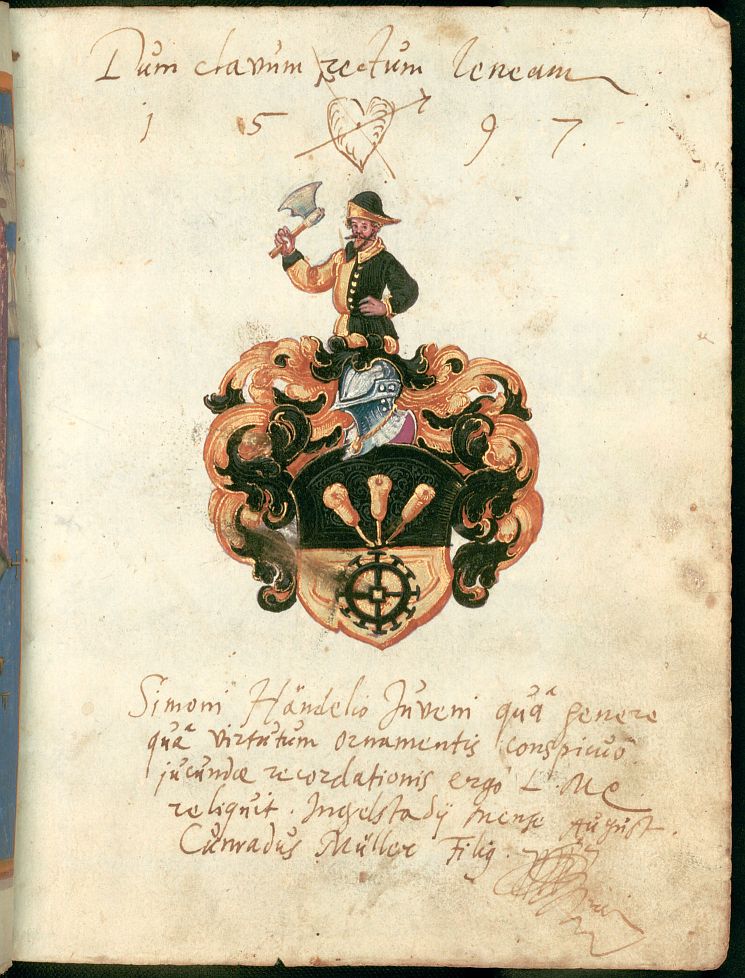 Dum clavum rectum teneam
1 5 9 7.
Simoni Händelio Juveni quâ genere
quâ virtutum ornamentis conspicuo
jucundæ recordationis ergò L. Me
reliquit. Ingolstadij mense August.
Cunradus Müller Filiꝰ.